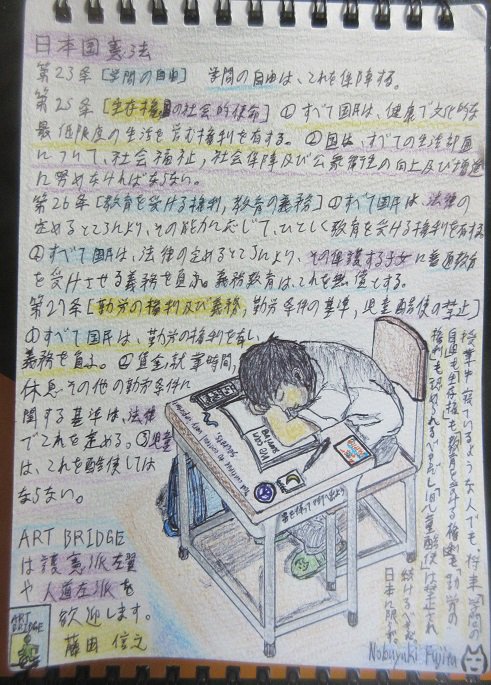 日本国憲法
第23条[学問の自由] 学問の自由は、これを保障する。
第25条[生存権、国の社会的使命]①すべて国民は、健康で文化的な
最低限度の生活を営む権利を有する。②国は、すべての生活部面
について、社会福祉,社会保障及び公衆衛生の向上及び増進
に努めなければならない。
第26条[教育を受ける権利,教育の義務]①すべて国民は、法律の
定めるところにより、その能力に応じて、ひとしく教育を受ける権利を有する
②すべて国民は、法律の定めるところにより、その保護する子女に普通教育
を受けさせる義務を負ふ。義務教育は、これを無償とする。
第27条[勤労の権利及び義務,勤労条件の基準,児童酷使の禁止]
①すべて国民は、勤労の権利を有し
義務を負ふ。②賃金,就業時間,
休息その他の勤労条件に
関する基準は、法律
でこれを定める。③児童
は、これを酷使しては
ならない。
授業中寝ているような人でも、将来「学問の
自由も生存権も教育を受ける権利も勤労の
権利も認められるべきだし「児童酷使」は禁止され
続けるべきだ
日本に限らず
ART BRIDGE
は護憲派左翼
や人道左派を
歓迎します。
藤田 信之
ART
BRIDGE
Nobuyuki Fujita